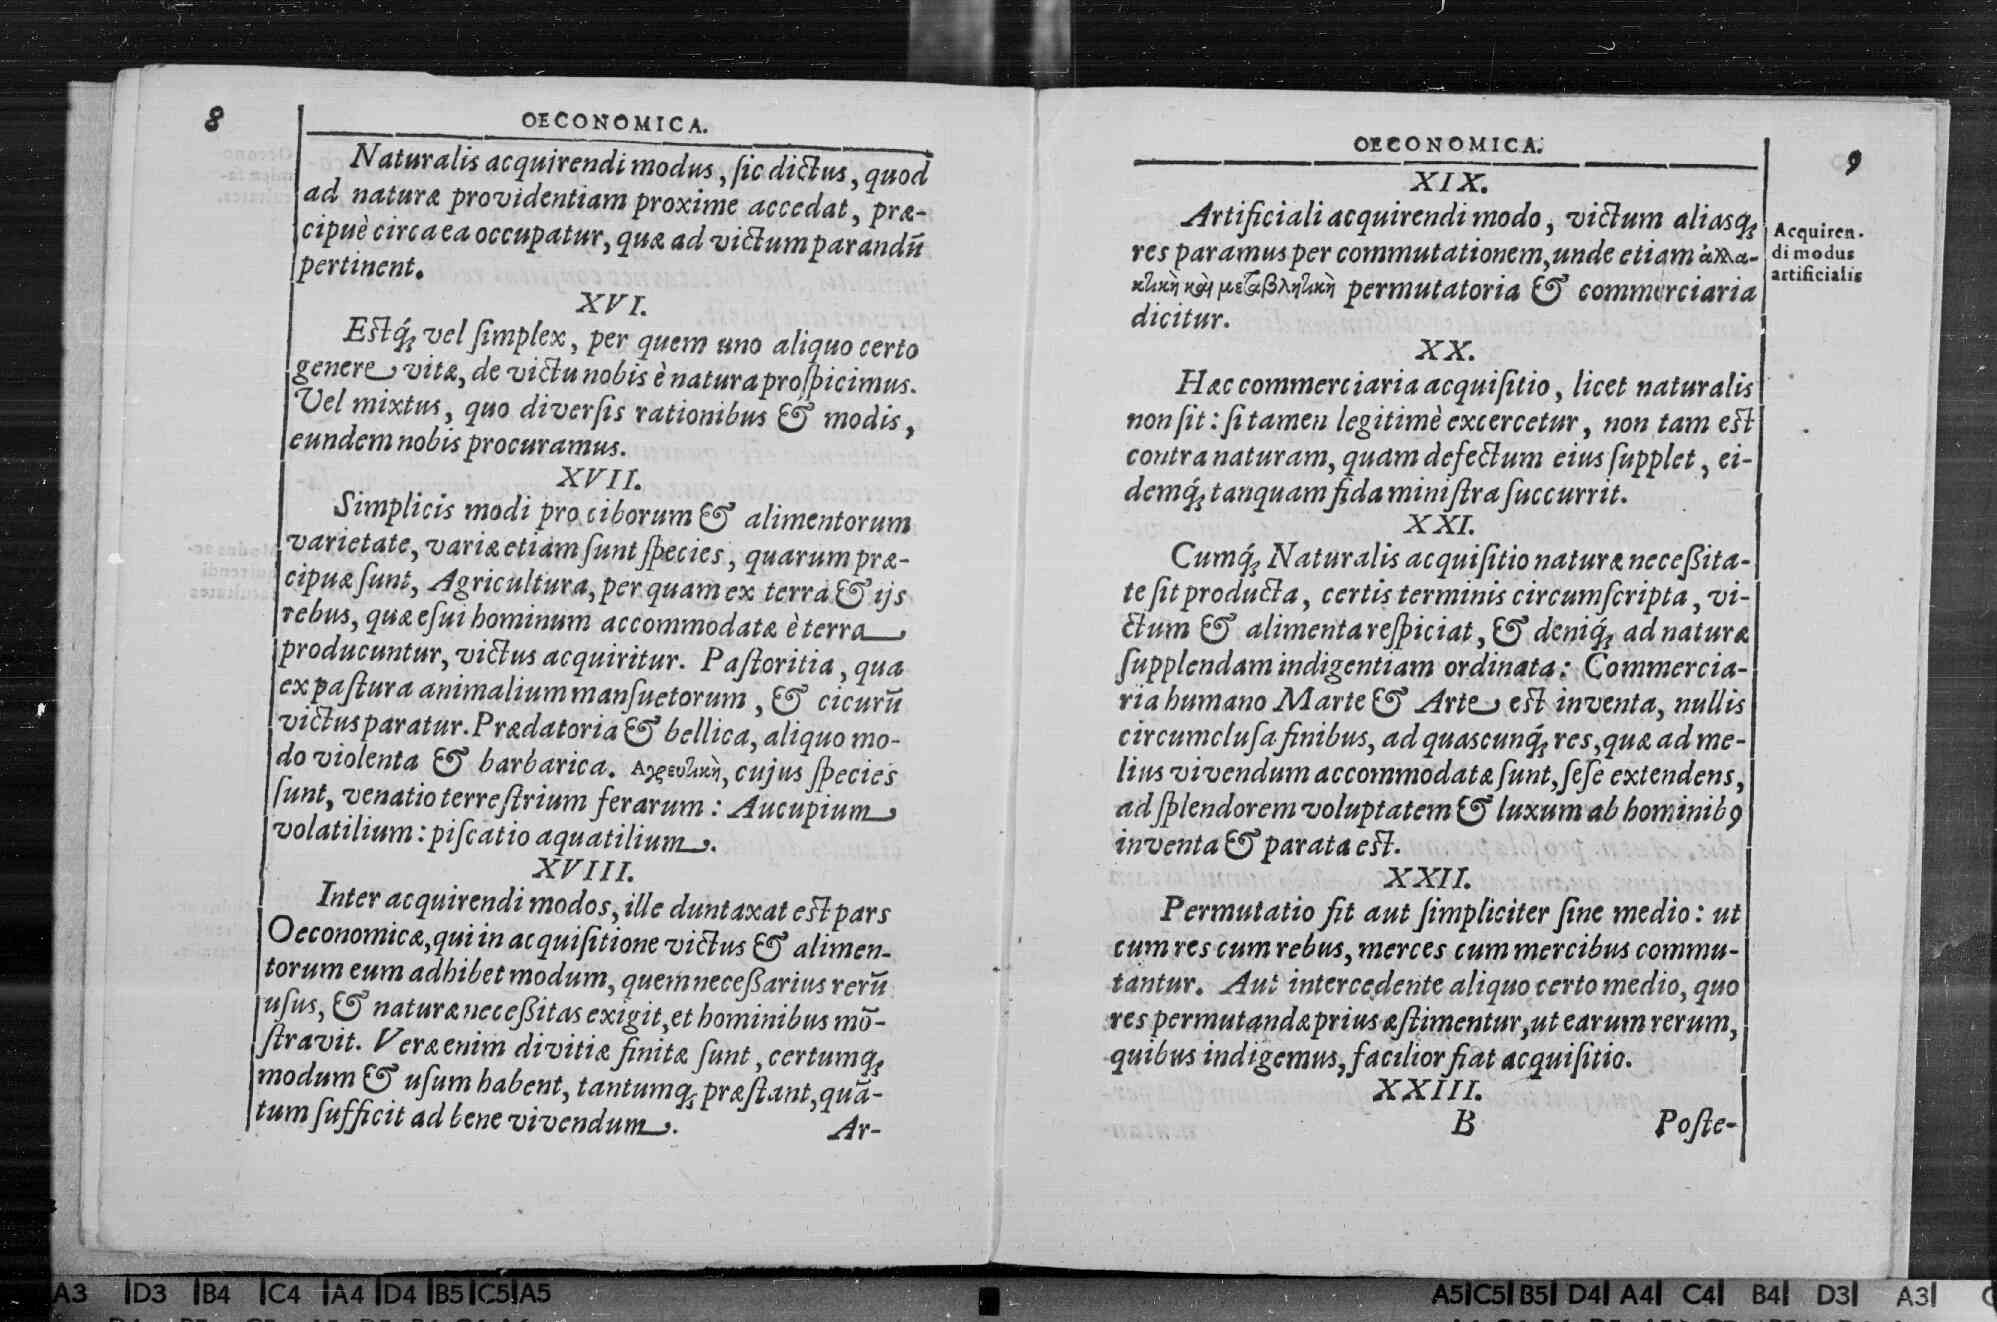 8
OECONOMICA.
Naturalis acquirendi modus, ſic dictus, quod
ad naturæ providentiam proxime accedat, præ-
cipuè circa ea occupatur, quæ ad victum parandũ
pertinent.
XVI.
Eſtq́ꝫ vel ſimplex, per quem uno aliquo certo
genere vitæ, de victu nobis è natura proſpicimus.
Vel mixtus, quo diverſis rationibus & modis,
eundem nobis procuramus.
XVII.
Simplicis modi pro ciborum & alimentorum
varietate, variæ etiam ſunt ſpecies, quarum præ-
cipuæ ſunt, Agricultura, per quam ex terra & ijs
rebus, quæ eſui hominum accommodatæ è terra
producuntur, victus acquiritur. Paſtoritia, qua
ex paſtura animalium manſuetorum, & cicurũ
victus paratur. Prædatoria & bellica, aliquo mo-
do violenta & barbarica. Αγρευτικὴ, cujus ſpecies
ſunt, venatio terreſtrium ferarum: Aucupium
volatilium: piſcatio aquatilium.
XVIII.
Inter acquirendi modos, ille duntaxat eſt pars
Oeconomicæ, qui in acquiſitione victus & alimen-
torum eum adhibet modum, quem neceßarius rerũ
uſus, & naturæ neceßitas exigit, et hominibus mõ-
ſtravit. Veræ enim divitiæ finitæ ſunt, certumqꝫ
modum & uſum habent, tantumqꝫ præſtant, quã-
tum ſufficit ad bene vivendum.
Ar-
OECONOMICA.
9
XIX.
Artificiali acquirendi modo, victum aliasqꝫ
res paramus per commutationem, unde etiam ἀλλα-
κτικὴ καὶ μεταβλητικὴ permutatoria & commerciaria
dicitur.
Acquiren-
di modus
artificialis
XX.
Hæc commerciaria acquiſitio, licet naturalis
non ſit: ſi tamen legitimè excercetur, non tam eſt
contra naturam, quam defectum eius ſupplet, ei-
demq́ꝫ tanquam fida miniſtra ſuccurrit.
XXI.
Cumq́ꝫ Naturalis acquiſitio naturæ neceßita-
te ſit producta, certis terminis circumſcripta, vi-
ctum & alimenta reſpiciat, & deniq́ꝫ ad naturæ
ſupplendam indigentiam ordinata: Commercia-
ria humano Marte & Arte eſt inventa, nullis
circumcluſa finibus, ad quascunq́ꝫ res, quæ ad me-
lius vivendum accommodatæ ſunt, ſeſe extendens,
ad ſplendorem voluptatem & luxum ab hominibꝰ
inventa & parata eſt.
XXII.
Permutatio fit aut ſimpliciter ſine medio: ut
cum res cum rebus, merces cum mercibus commu-
tantur. Aut intercedente aliquo certo medio, quo
res permutandæ prius æſtimentur, ut earum rerum,
quibus indigemus, facilior fiat acquiſitio.
XXIII.
B
Poſte-
A3 D3 B4 C4 A4 D4 B5 C5 A5
A5 C5 B5 D4 A4 C4 B4 D3 A3